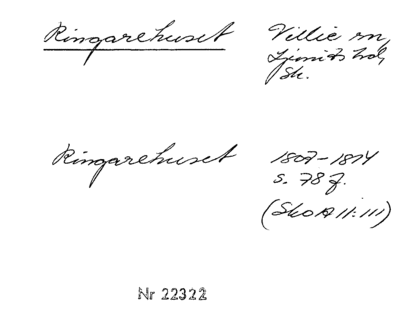 Ringarehuset Villie sn,
Ljunits hd,
Sk.
Ringarehuset 1807-1814
s. 78 f.
(SkoA II:III)
Nr 22322